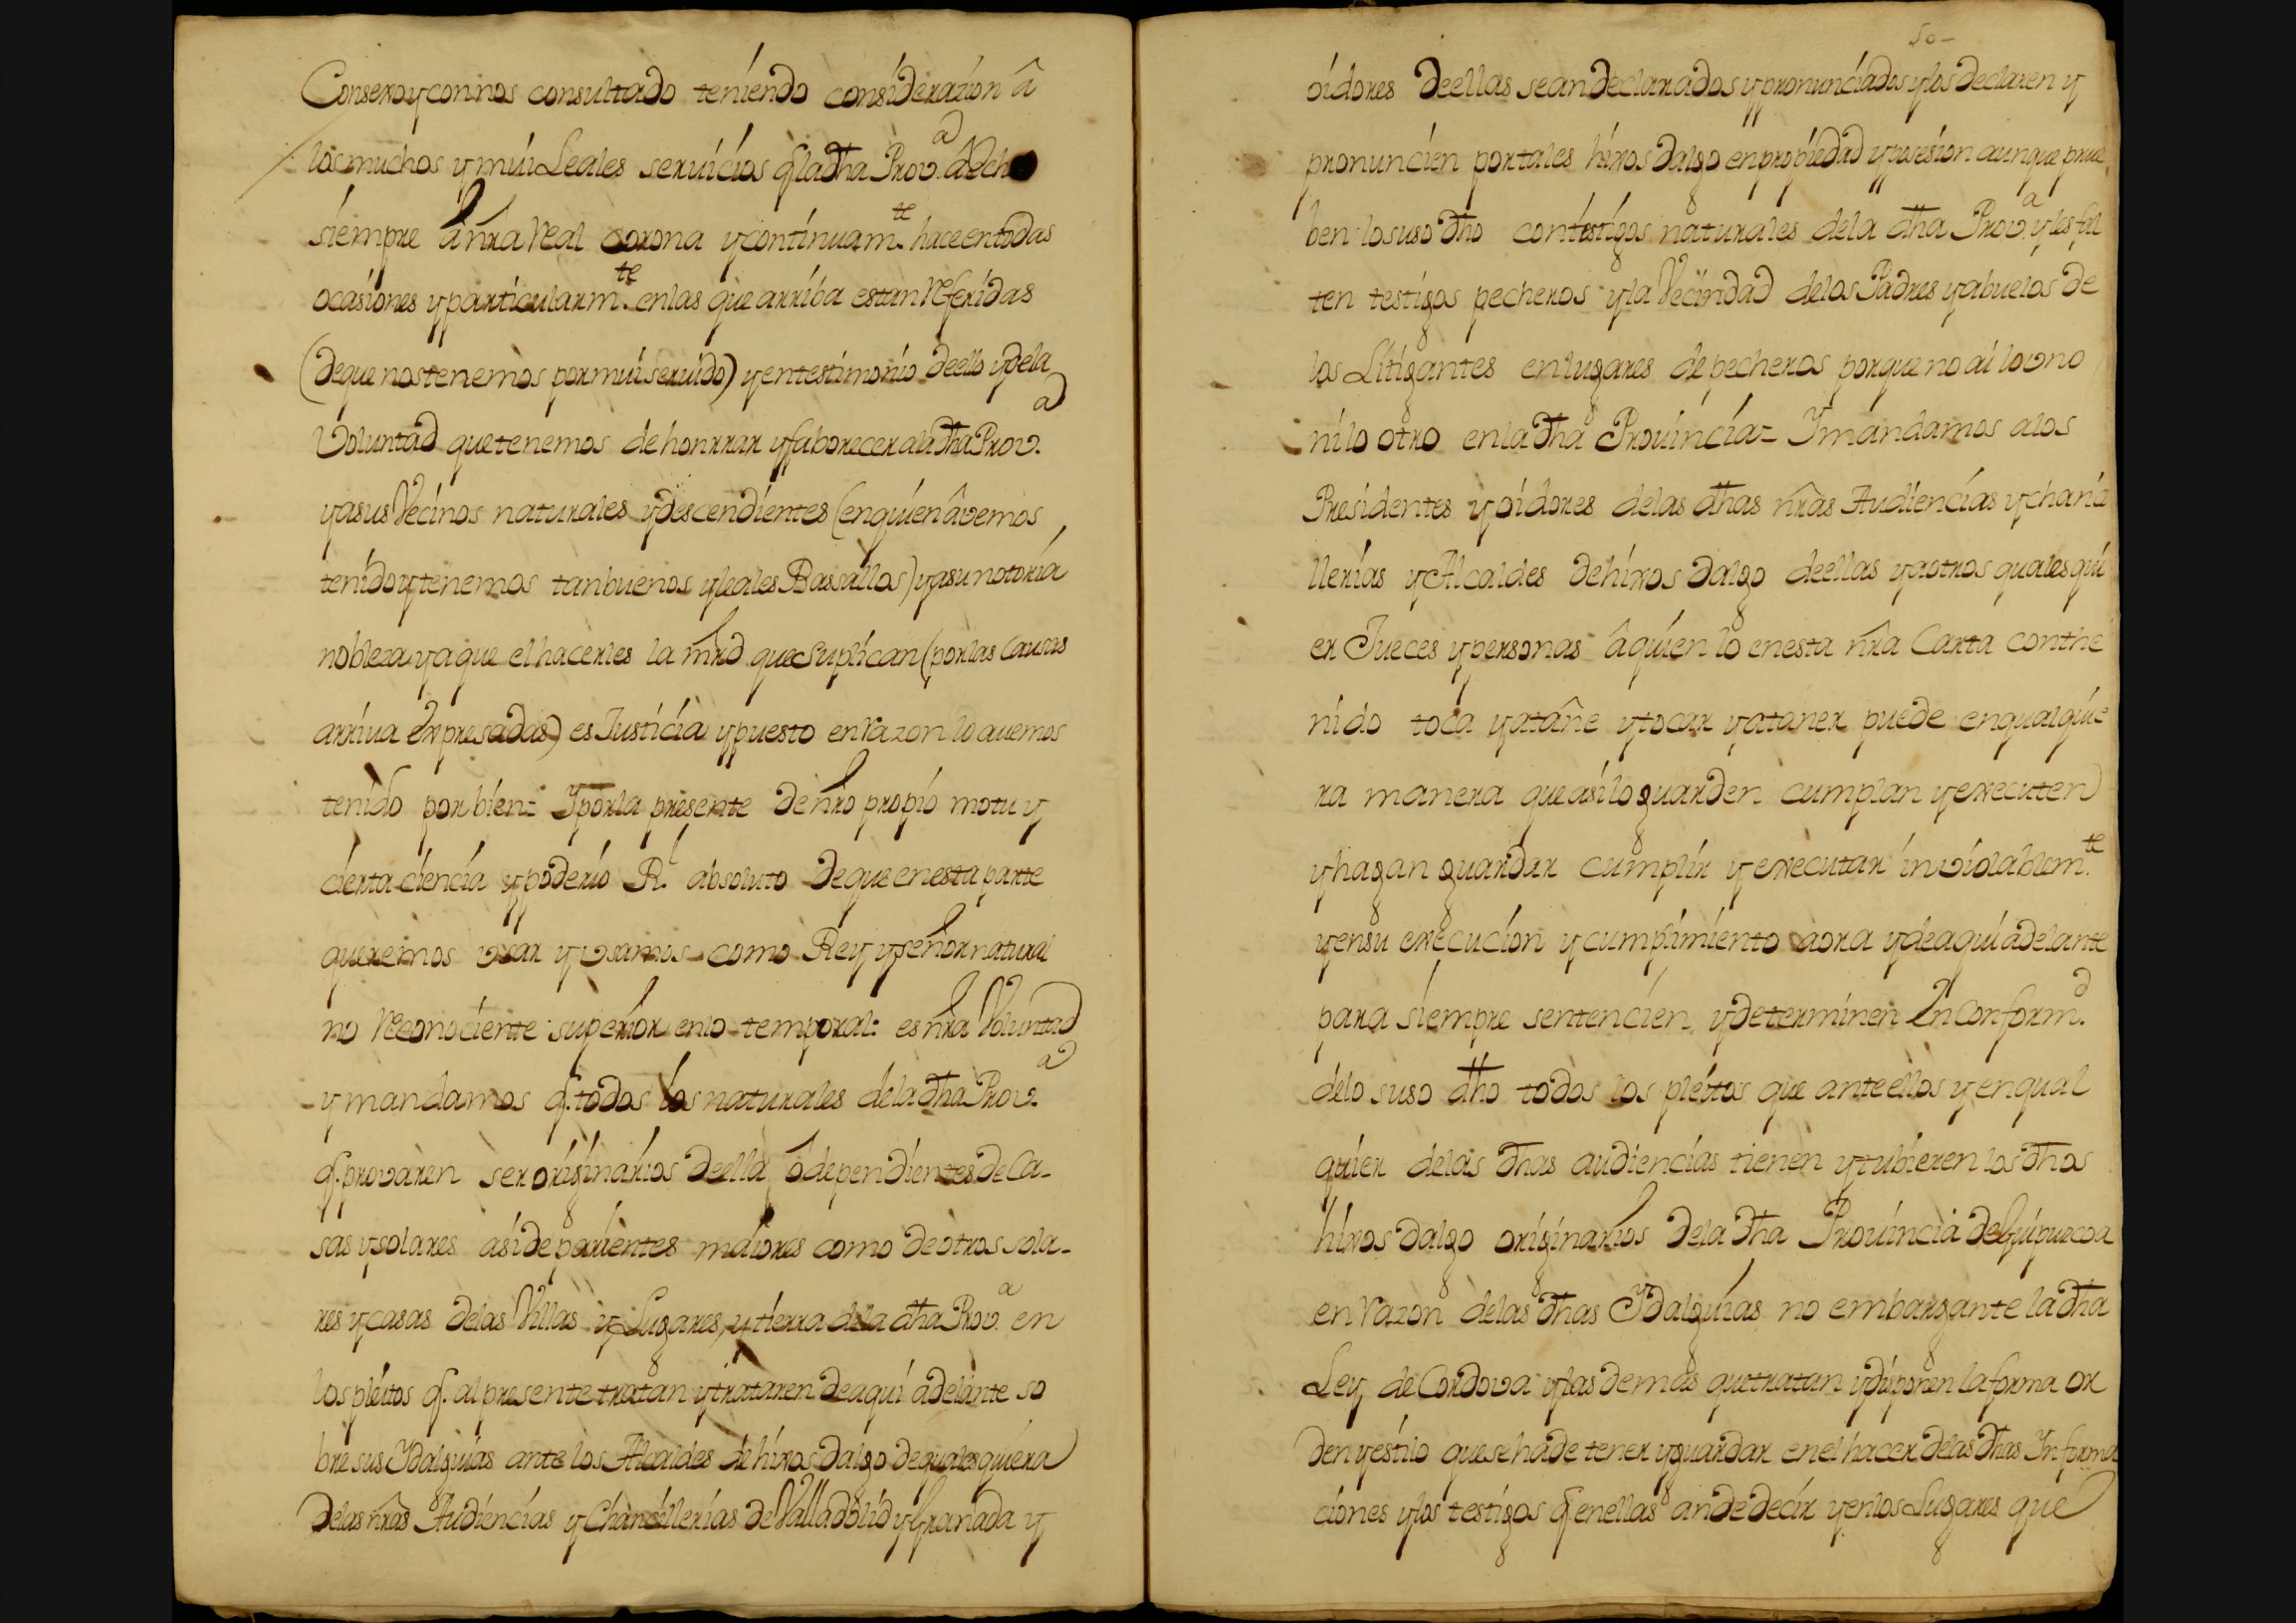 Consexo y con nos consultado teniendo considerazion â
los muchos y mui Leales seruicios q̃ la dħa Prov.ª â hecho
siempre â nr̃a Real corona y continuam.te hace en todas
ocasiones y particularm.te en las que arriba estan Referidas
(de que nos tenemos por mui seruido) y en testimonio de ello y de la
Voluntad que tenemos de honrrar y faborecer a la dħa Prov.ª
y a sus Vecinos naturales y descendientes (en quien âvemos
tenido y tenemos tan buenos y leales Bassallos) y a su notoria
nobleza y a que el hacerles la mrd̃ que suplican (por las Causas
arriua expresadas) es Justicia y puesto en razon lo auemos
tenido por bien= Y por la presente de nr̃o propio motu y
cierta ciencia y poderio R.l absoluto de que en esta parte
queremos vsar y vsamos como Rey y señor natural
no Reconociente superior en lo temporal: es nr̃a Voluntad
y mandamos q. todos los naturales de la dħa Prov.ª
q. provaren ser originarios de ella, o dependientes de Ca-
sas y solares asi de parientes maiores como de otros sola-
res y casas de las Villas y Lugares, y tierra de la dħa Prov.ª en
los pleitos q. al presente tratan y trataren de aqui adelante so
bre sus Ydalguias ante los Alcaldes de hixos dalgo de qualesquiera
de las nr̃as Audiencias y Chancillerias de Valladolid y Granada y
50-
oidores de ellas sean declarados y pronunciados y los declaren y
pronuncien por tales hixos dalgo en propiedad y posesion aunque prue
ben lo suso dħo con testigos naturales de la dħa Prov.ª y les fal
ten testigos pecheros y la Vecindad de los Padres y abuelos de
los Litigantes en lugares de pecheros porque no ai lo vno
ni lo otro en la dħa Prouincia= Y mandamos a los
Presidentes y oidores de las dħas nr̃as Audiencias y chanci
llerias y Alcaldes de hixos dalgo de ellas y a otros qualesqui
er Jueces y personas â quien lo en esta nr̃a Carta conthe
nido toca y atañe y tocar y atañer puede en qualquie
ra manera que asi lo guarden cumplan y executen
y hagan guardar cumplir y executar inviolablem.te
y en su execucion y cumplimiento aora y de aqui adelante
para siempre sentencien y determinen En conform.d
de lo suso dħo todos los pleitos que ante ellos y en qual
quier de las dħas audiencias tienen y tubieren los dħos
hixos dalgo originarios de la dħa Prouincia de Guipuzcoa
en razon de las dħas Ydalguias no embargante la dħa
Ley de Cordova y las demas que tratan y disponen la forma or
den y estilo que se ha de tener y guardar en el hacer de las dħas Informa
ciones y los testigos q. en ellas an de decir y en los Lugares que